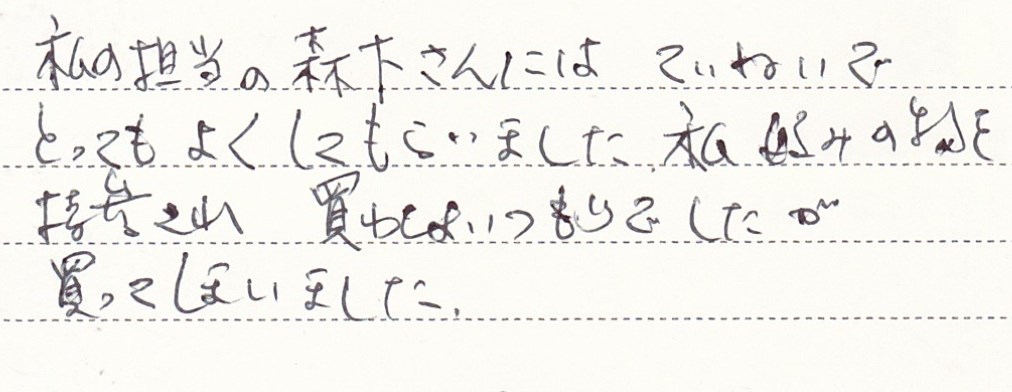 私の担当の森下さんには ていねいで
とってもよくしてもらいました。私好みの物を
持参され 買わないつもりでしたが
買ってしまいました。